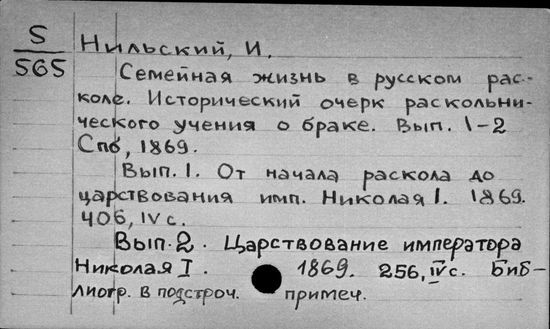 S
565
Нильский, И.
Семейная жизнь в русском рас-
коле. Исторический очерк раскольни-
ческого учения о браке. Вып. 1-2
Спб, 1869.
Вып. 1. От начала раскола до
царствования имп. Николая I. 1869.
406, IV с.
Вып. 2. Царствование императора
Николая I. 1869. 256, IV с. Биб-
лиогр. в подстроч. примеч.